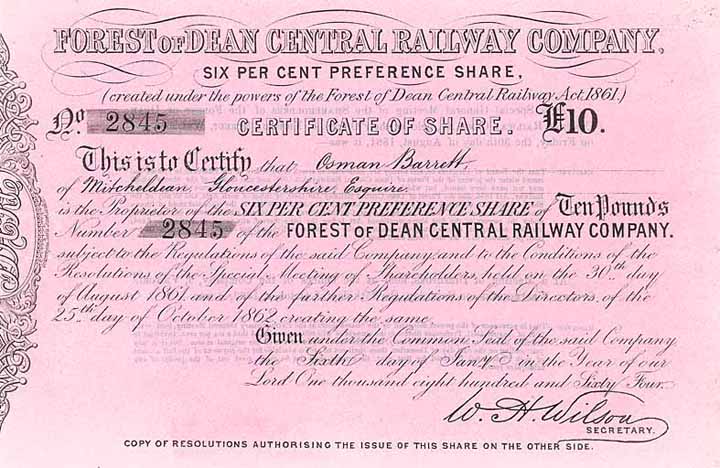 FOREST OF DEAN CENTRAL RAILWAY COMPANY,
SIX PER CENT PREFERENCE SHARE,
(created under the powers of the Forest of Dean Central Railway Act, 1861.)
No. 2845 CERTIFICATE OF SHARE. £10.
This is to Certify that Osman Barrett
of Mitcheldean, Gloucestershire, Esquire
is the Proprietor of the SIX PER CENT PREFERENCE SHARE of Ten Pounds
Number 2845 of the FOREST OF DEAN CENTRAL RAILWAY COMPANY.
subject to the Regulations of the said Company, and to the Conditions of the
Resolutions of the Special Meeting of Shareholders, held on the 30th day
of August 1861, and of the further Regulations of the Directors, of the
25th day of October 1862, creating the same.
Given under the Common Seal of the said Company,
the Sixth day of Jany in the Year of our
Lord One thousand eight hundred and Sixty Four.
W. H. Wilson
SECRETARY.
COPY OF RESOLUTIONS AUTHORISING THE ISSUE OF THIS SHARE ON THE OTHER SIDE.